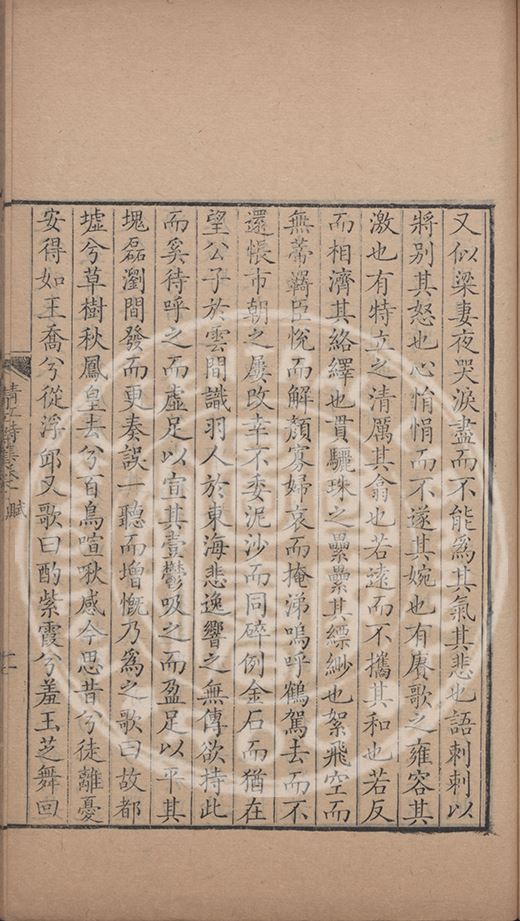 又似梁妻夜哭淚盡而不能爲其氣其悲也語刺刺以
將別其怒也心悁悁而不遂其婉也有賡歌之雍容其
激也有特立之清厲其翕也若遠而不攜其和也若反
而相濟其絡繹也貫驪珠之纍纍其縹緲也絮飛空而
無蔕羈臣悅而解顏寡婦哀而掩涕嗚呼鶴駕去而不
還悵市朝之屢改幸不委泥沙而同碎例金石而猶在
望公子於雲間識羽人於東海悲逸響之無傳欲持此
而奚待呼之而虛足以宣其壹鬱吸之而盈足以平其
塊磊瀏間發而更奏誤一聽而增慨乃爲之歌曰故都
墟兮草樹秋鳳皇去兮百鳥喧啾感今思昔兮徒離憂
安得如王喬兮從浮邱又歌曰酌紫霞兮羞玉芝舞回
清江詩集卷一 賦